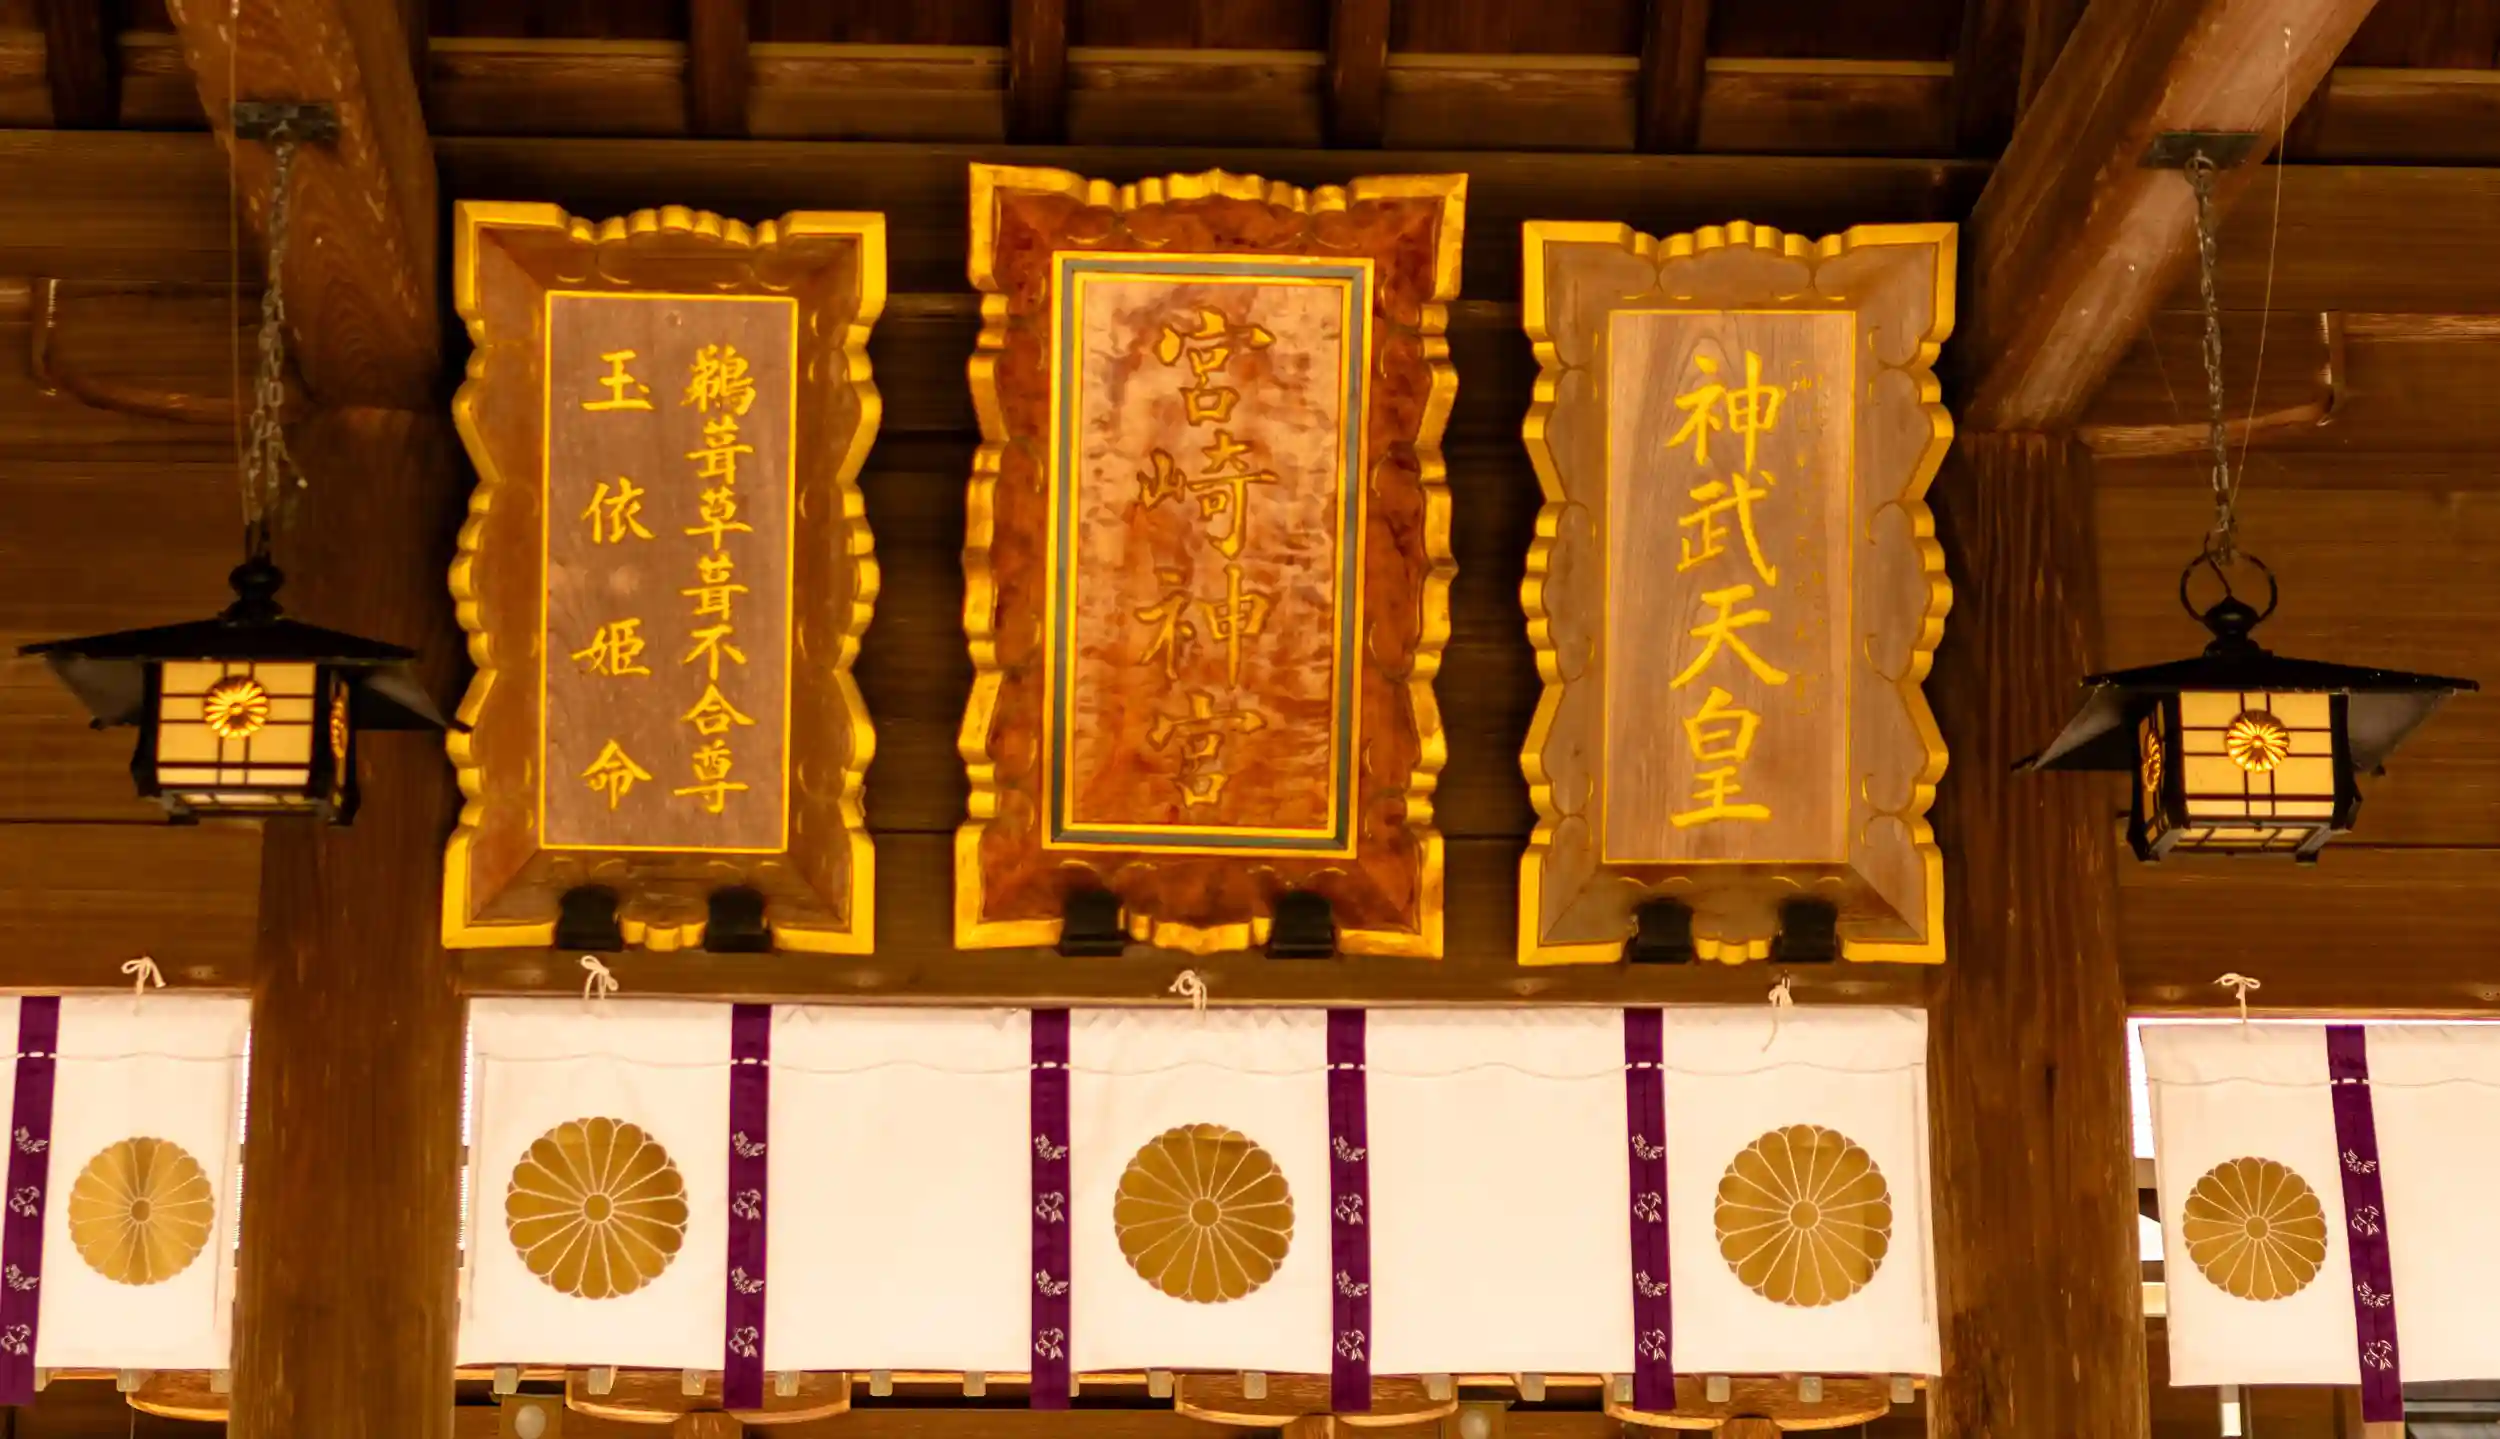 神武天皇
宮崎神宮
鵜葺草葺不合尊
玉依姫命